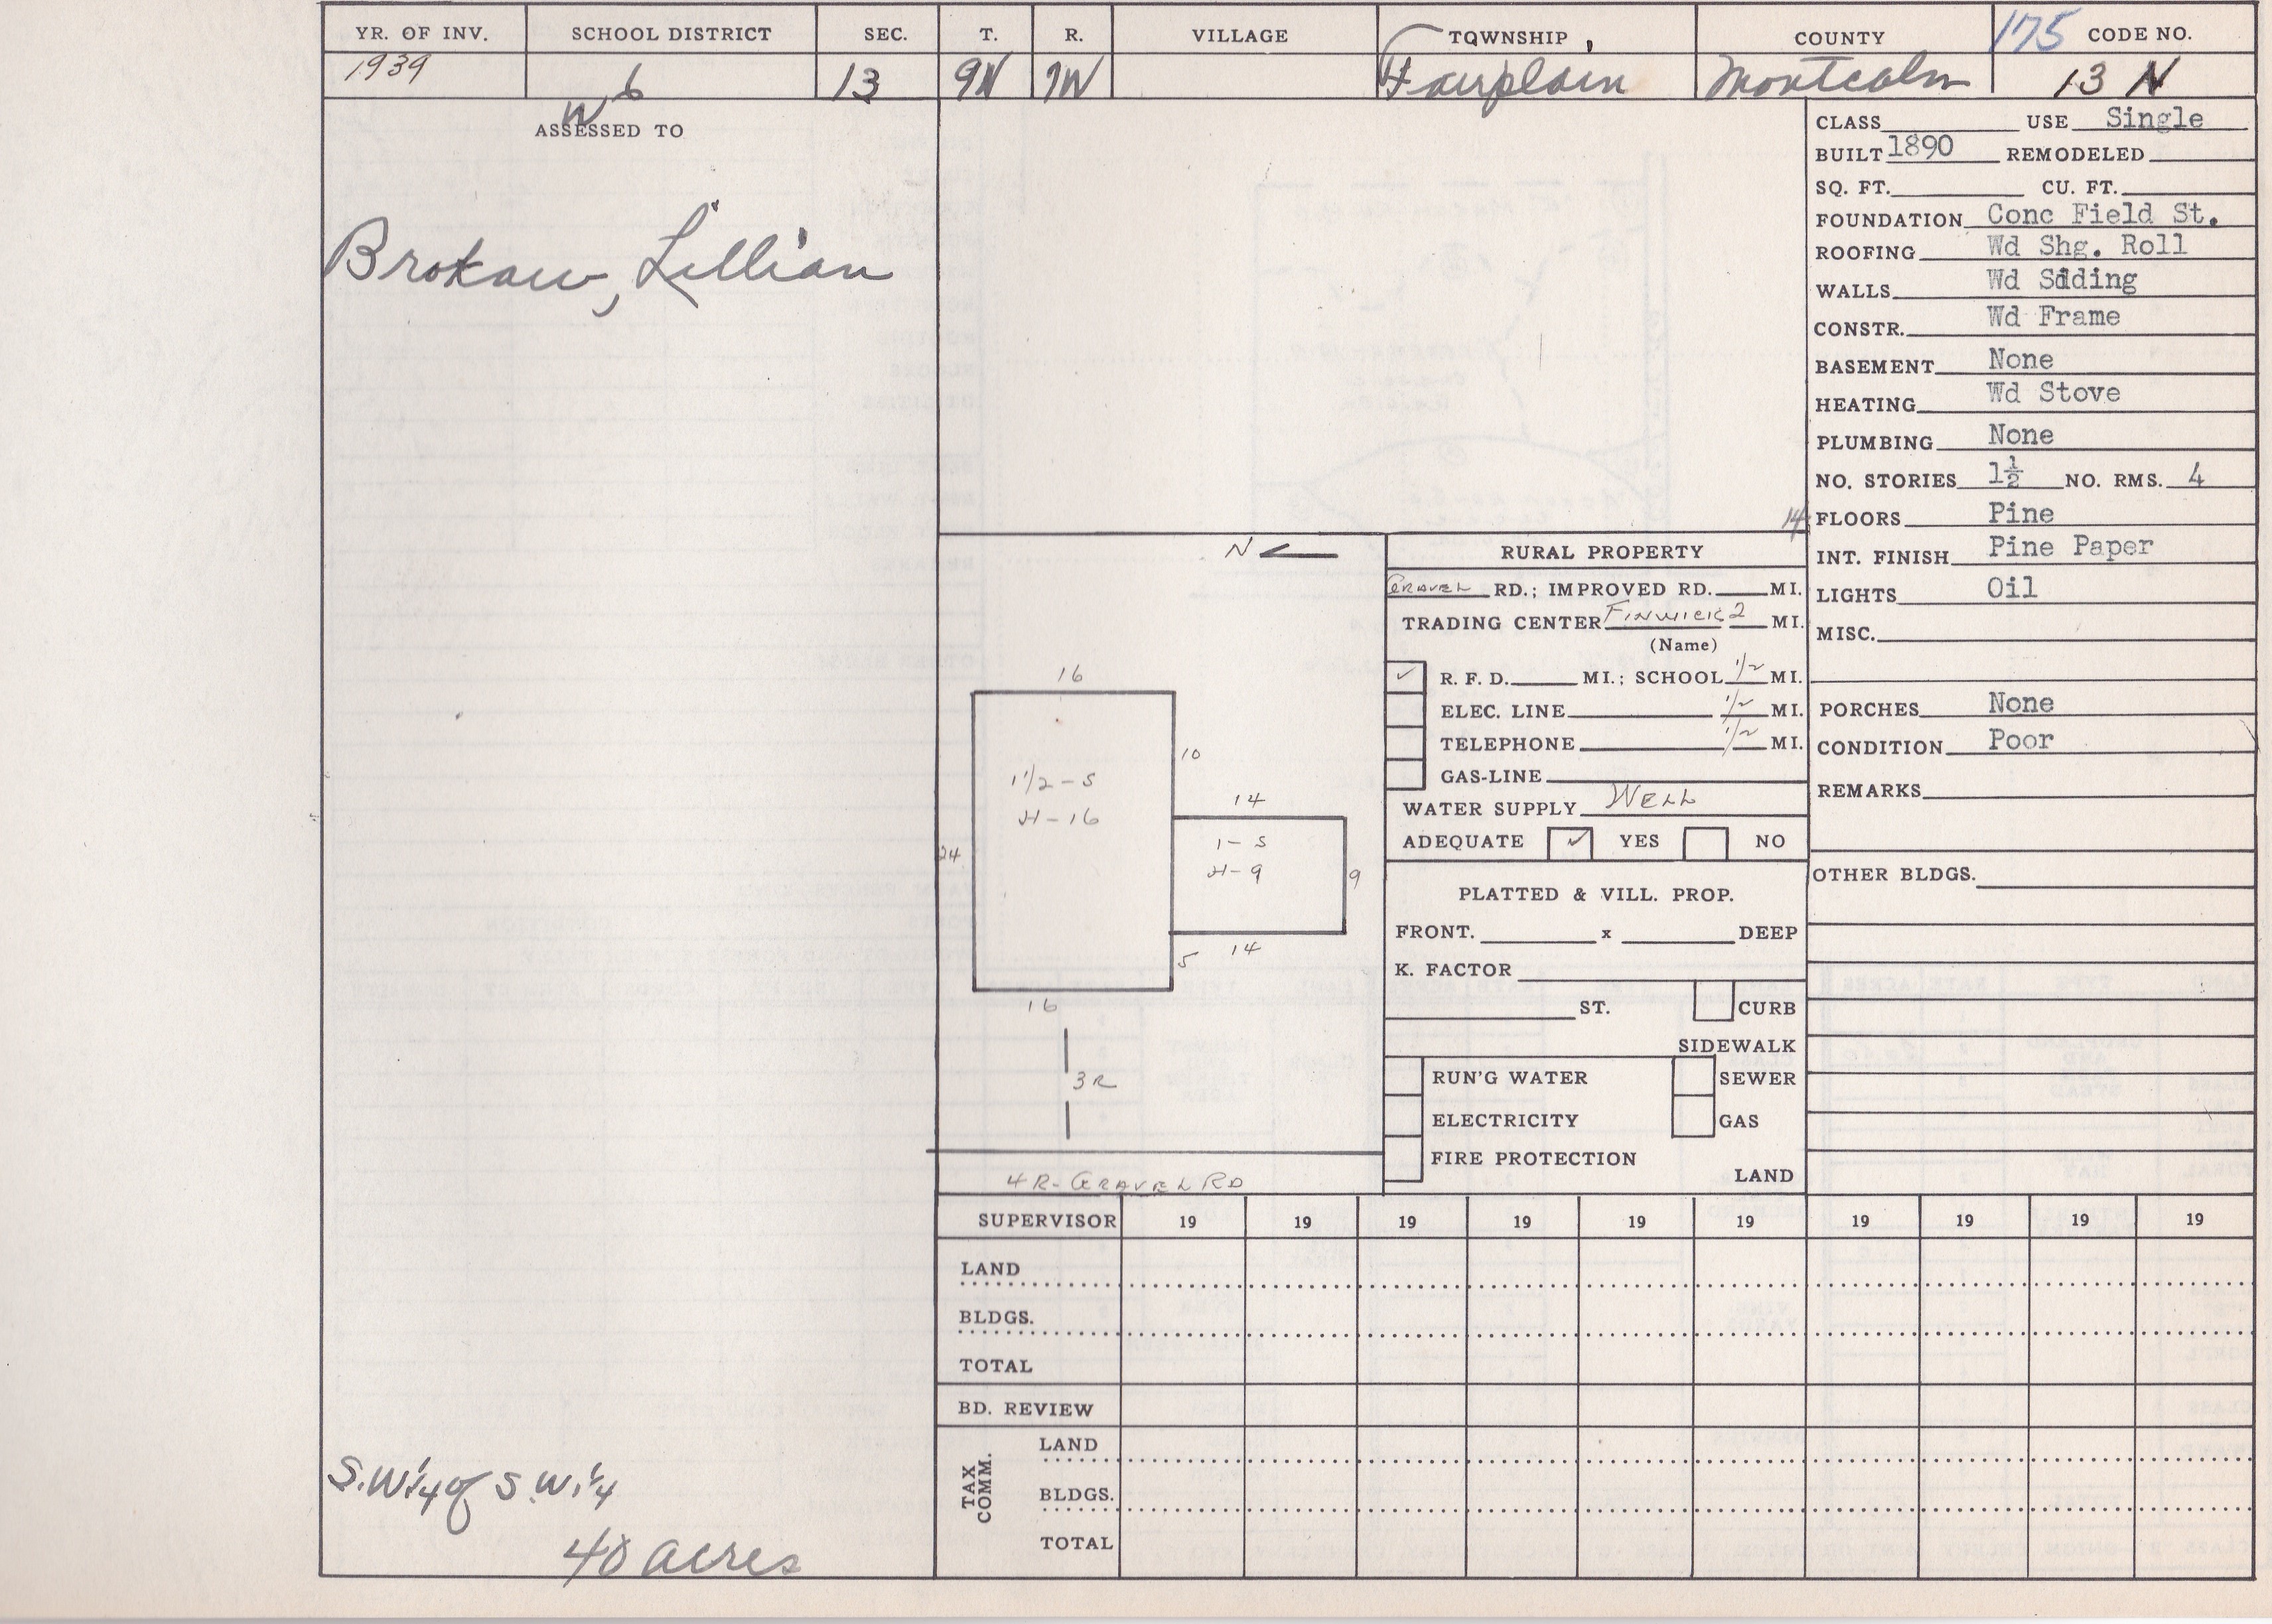 YR. OF INV. SCHOOL DISTRICT SEC. T. R. VILLAGE TOWNSHIP COUNTY 175 CODE NO.
1939 6 13 9N 7W Fairplain Montcalm 13 N
W
ASSESSED TO
Brokaw, Lillian
S.W.1/4 of S.W.1/4
40 acres
N
16
10
1 1/2-S
H-16
24
14
1-S
H-9
9
14
5
16
3R
4R-GRAVEL RD
14
RURAL PROPERTY
GRAVEL RD.; IMPROVED RD. MI.
TRADING CENTER FINWICK 2 MI.
(Name)
✓ R. F. D. MI.; SCHOOL 1/2 MI.
ELEC. LINE 1/2 MI.
TELEPHONE 1/2 MI.
GAS-LINE
WATER SUPPLY WELL
ADEQUATE ✓ YES NO
PLATTED & VILL. PROP.
FRONT. x DEEP
K. FACTOR
ST. CURB
SIDEWALK
RUN'G WATER SEWER
ELECTRICITY GAS
FIRE PROTECTION
LAND
CLASS USE Single
BUILT 1890 REMODELED
SQ. FT. CU. FT.
FOUNDATION Conc Field St.
ROOFING Wd Shg. Roll
WALLS Wd Sdding
CONSTR. Wd Frame
BASEMENT None
HEATING Wd Stove
PLUMBING None
NO. STORIES 1½ NO. RMS. 4
FLOORS Pine
INT. FINISH Pine Paper
LIGHTS Oil
MISC.
PORCHES None
CONDITION Poor
REMARKS
OTHER BLDGS.
SUPERVISOR 19 19 19 19 19 19 19 19 19 19
LAND
BLDGS.
TOTAL
BD. REVIEW
TAX COMM.
LAND
BLDGS.
TOTAL